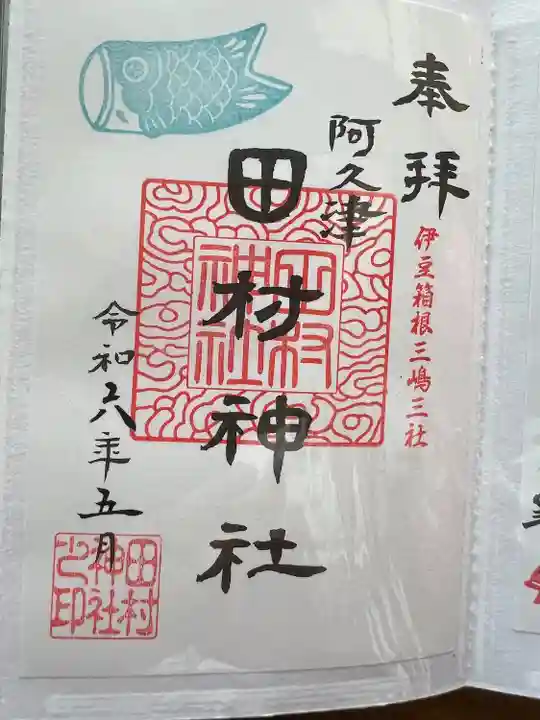 奉拝
伊豆箱根三嶋三社
阿久津
田村神社
田村
神社
令和六年五月
田村
神社
之印